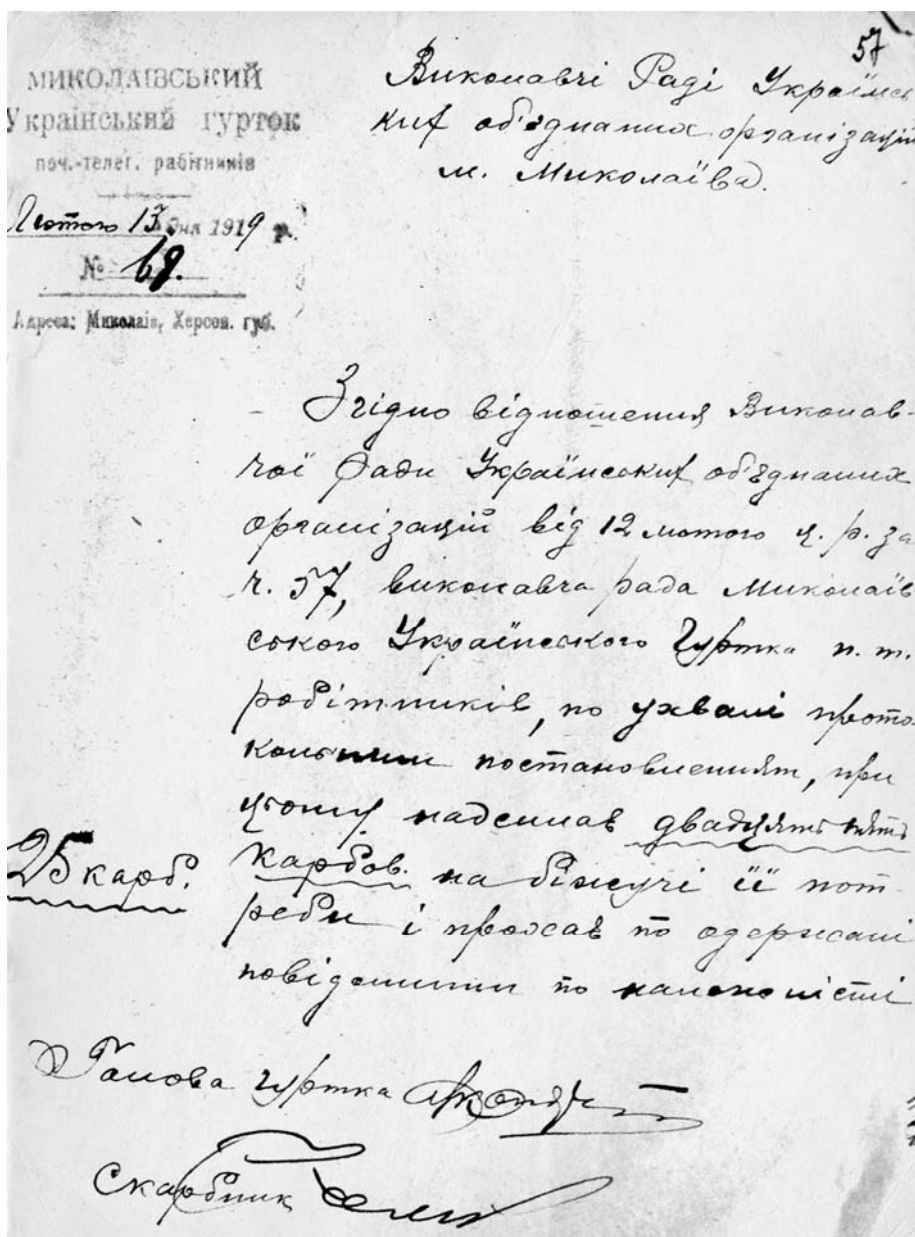 57
МИКОЛАЇВСЬКИЙ
Український гурток
поч.-телег. рабітників
Лютого 13 дня 1919 р.
№ 68.
Адреса: Миколаїв, Херсон. губ.
Виконавчі Раді Українсь
ких об'єднаних організацій
м. Миколаїва.
Згідно відношення Виконав-
чої Ради Українських об'єднаних
організацій від 12 лютого ц. р. за
ч. 57, виконавча рада Миколаїв
ського Українського Гуртка п. т.
робітників, по ухвалі прото-
постановленням, при
цьому надсилає двадцять пять
карбов. на біжучі її пот
реби і прохає по одержані
повідомити по належністі
25 карб.
Голова гуртка
Скарбник